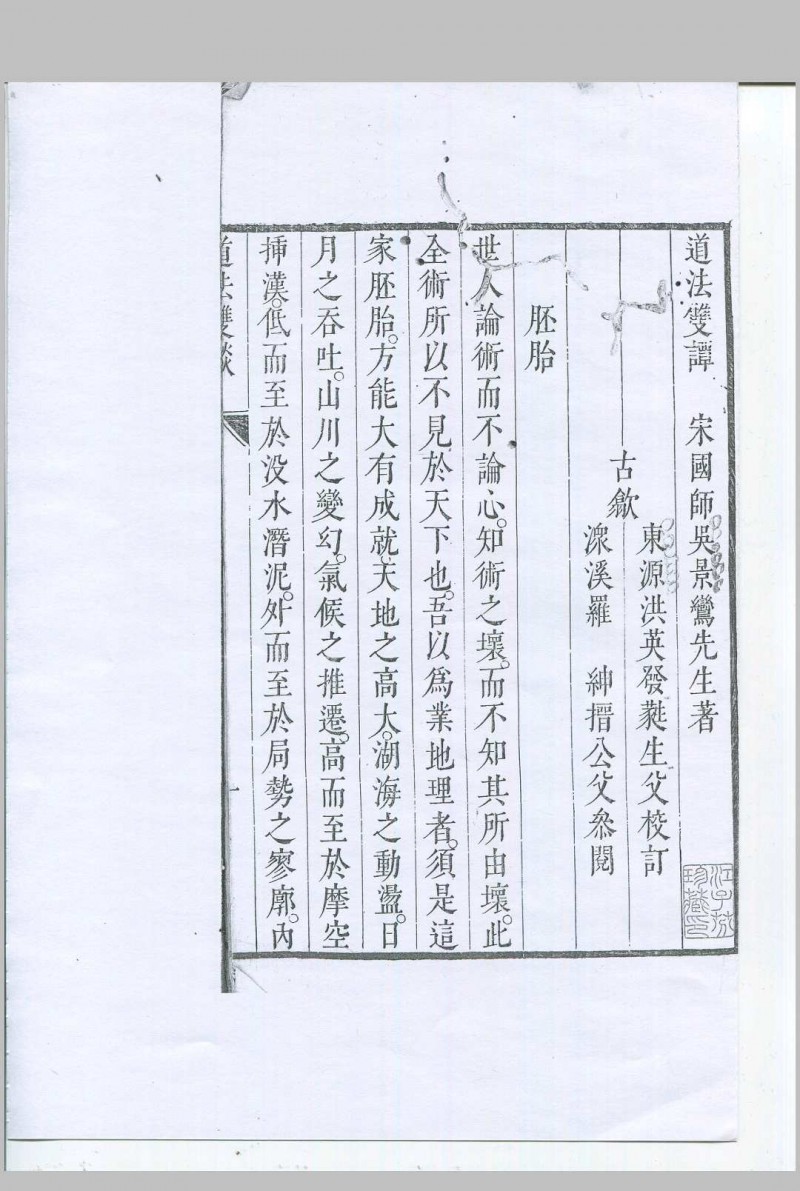 道法雙譚　宋國師吳景鸞先生著
古歙
東源洪英發㽔生父校訂
潨溪羅　紳搢公父叅閱
胚胎
世人論術而不論心。知術之壞。而不知其所由壞。此
全術所以不見於天下也。吾以爲業地理者。須是這
家胚胎。方能大有成就。天地之高大。湖海之動盪。日
月之吞吐。山川之變幻。氣候之推遷。高而至於摩空
揷漢。低而至於没水潛泥。外而至於局勢之寥廓。内
道法雙談
一